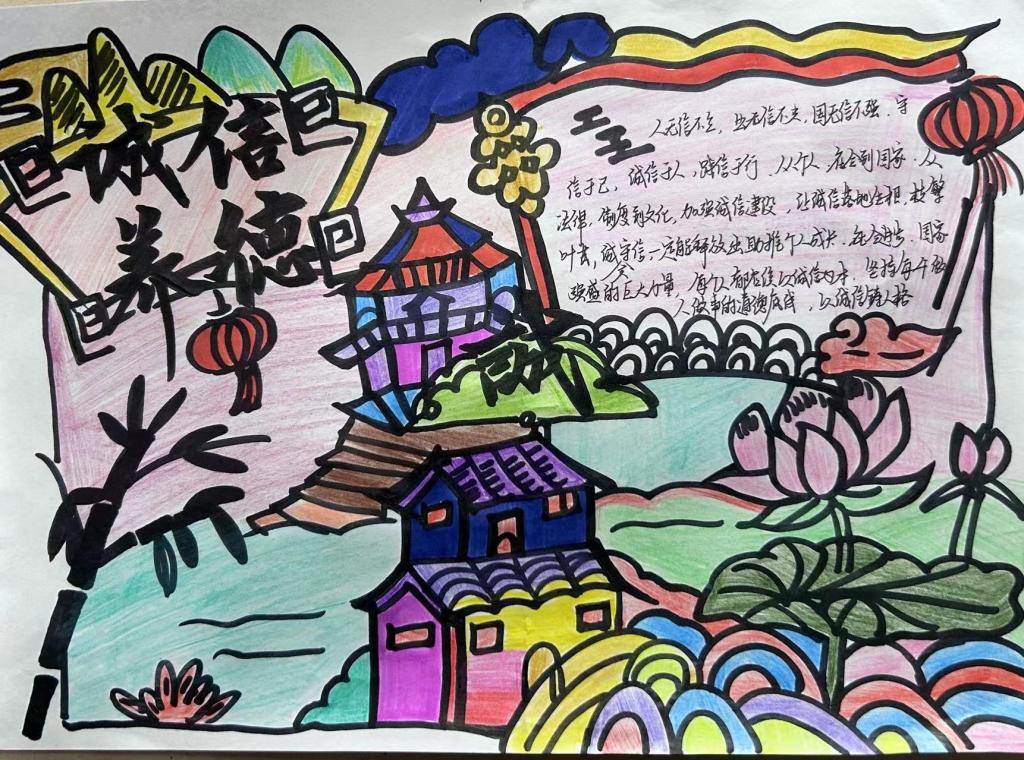 诚信
养德
人无信不立，业无信不兴，国无信不强．守
信于己，诚信于人，践信于行．从个人、社会到国家．从
法律，制度到文化，加强诚信建设，让诚信落地生根，枝繁
叶茂，诚守信一定能释放出助推个人成长．社会进步．国家
强盛的巨大力量，每个人都应该以诚信为本，坚持每个做
人做事的道德底线，以诚信铸人格
诚